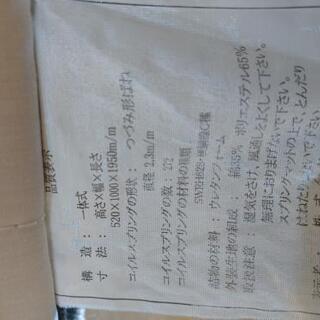 品質表示
構造： 一体式
寸法： 高さX幅X長さ
520X1000X1950m/m
コイルスプリングの形状： つづみ形ばね
直径 2.3m/m
コイルスプリングの数： 272
コイルスプリングの材料の種類
詰物の材料： ウレタンフォーム
外装生地の組成： 綿35% ポリエステル65%
取扱注意： 湿気をさけ、風通しをよくして下さい。
無理におりまげないで下さい。
スプリングマットの上で、とんだり
はねたりしないで下さい。
表示者： 株